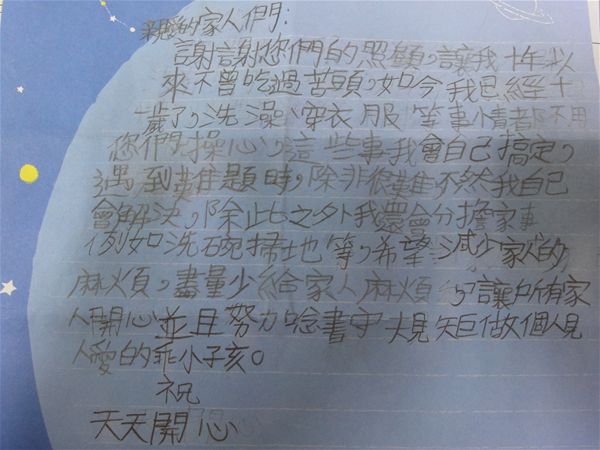 親愛的家人們：
謝謝您們的照顧，讓我十年以
來不曾吃過苦頭，如今我已經十
歲了，洗澡、穿衣服等事情都不用
您們操心，這些事我會自己搞定，
遇到難題時，除非很難不然我自己
會解決，除此之外我還會分擔家事
例如洗碗掃地等，希望減少家人的
麻煩，盡量少給家人麻煩，讓所有家
人開心並且努力唸書守規矩做個人見
人愛的乖小孩。
祝
天天開心